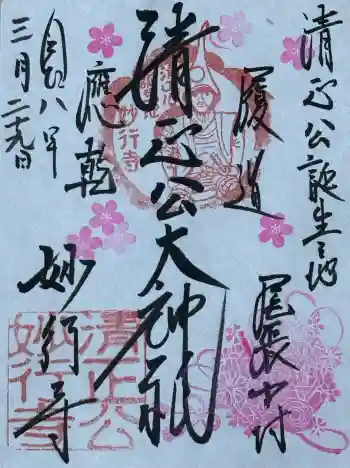 清正公誕生之地
尾張中村
履道
清正公大神祇
應乾
妙行寺
令和八年
三月二十九日
妙行寺
清正公
妙行寺